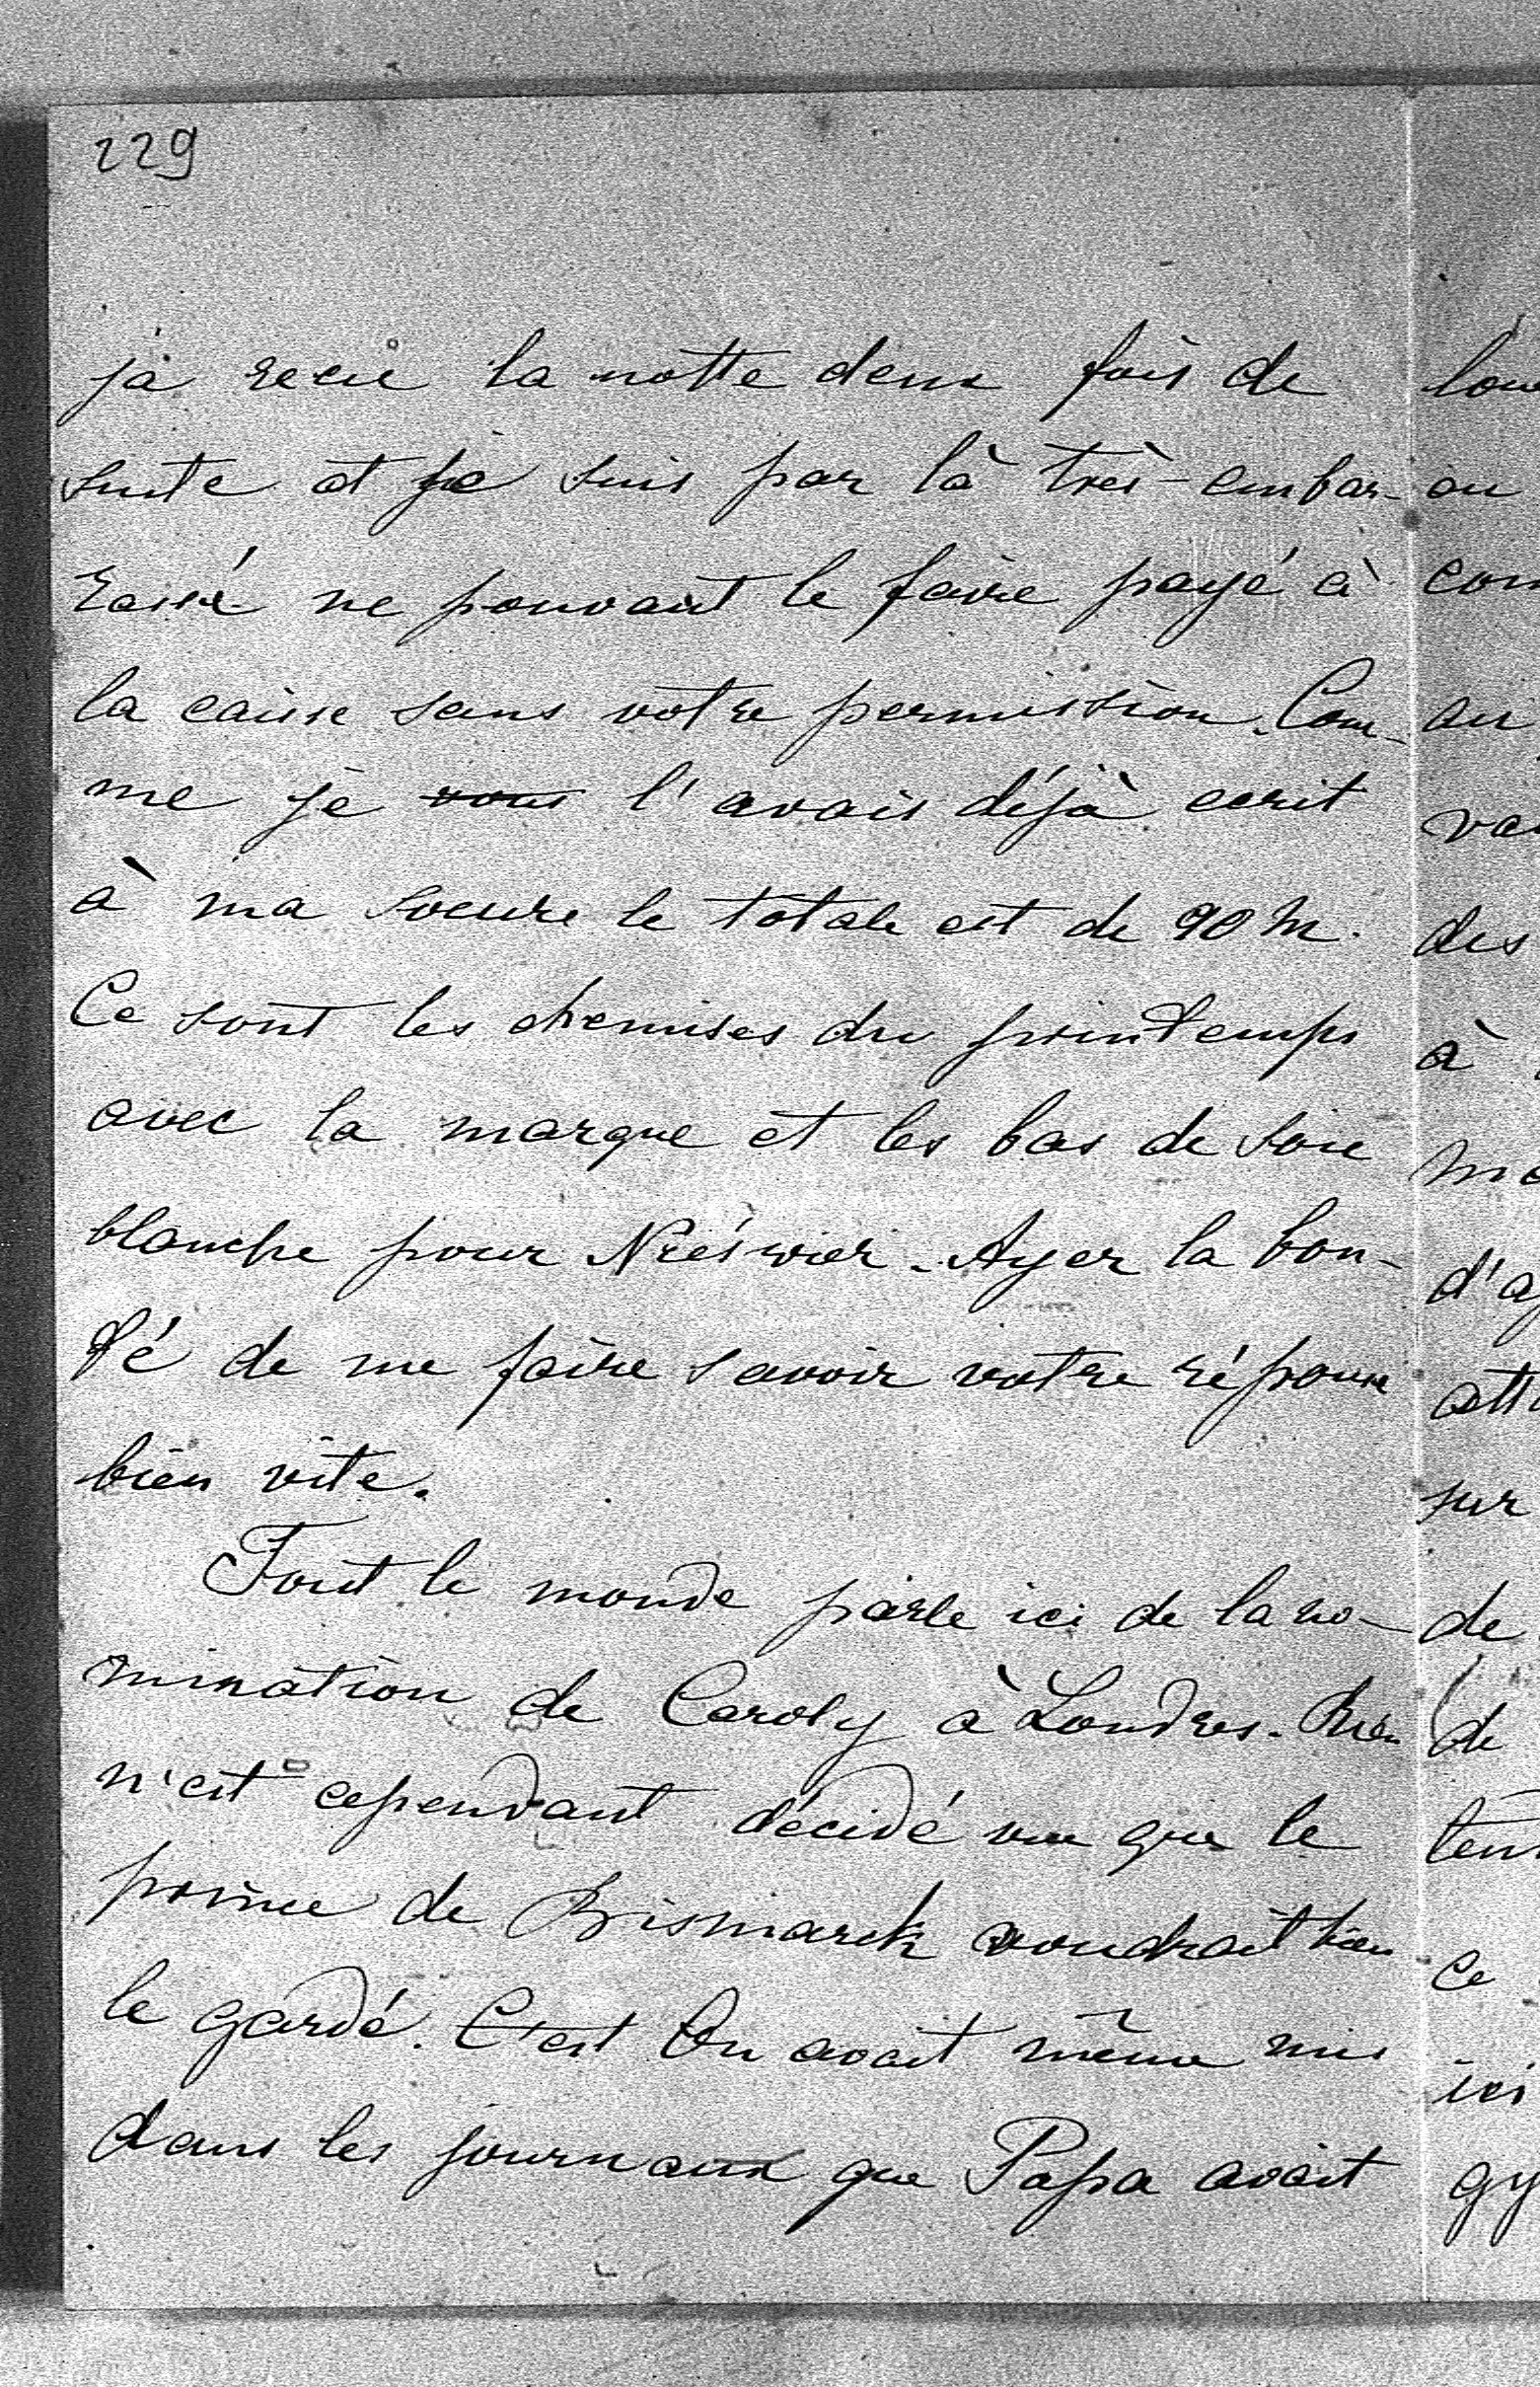 229
ja recu la notte deux fois de
suite et je suis par là très-embar-
rassé ne pouvant le faire payé à
la caisse sans votre permission. Com-
me je vous l'avais déjà ecrit
à ma soeure le totale est de 90 M.
Ce sont les chemises du printemps
avec la marque et les bas de soie
blanche pour Nieswier. Ayer la bon-
té de me faire savoir votre réponse
bien vite.
Tout le monde parle ici de la no-
mination de Caroly à Londres. Rien
n'est cependant décidé vu que le
prince de Bismarck voudrait bien
le gardé. C'est On avait même mis
dans les journaux que Papa avait
ou
au
des
à
d'a
sur
de
de
ce
ici